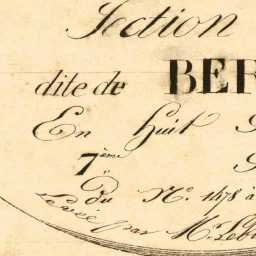 Section
dite de BER
En Huit
7ème
Du N.° 1478 à
Levée par M.r Leb